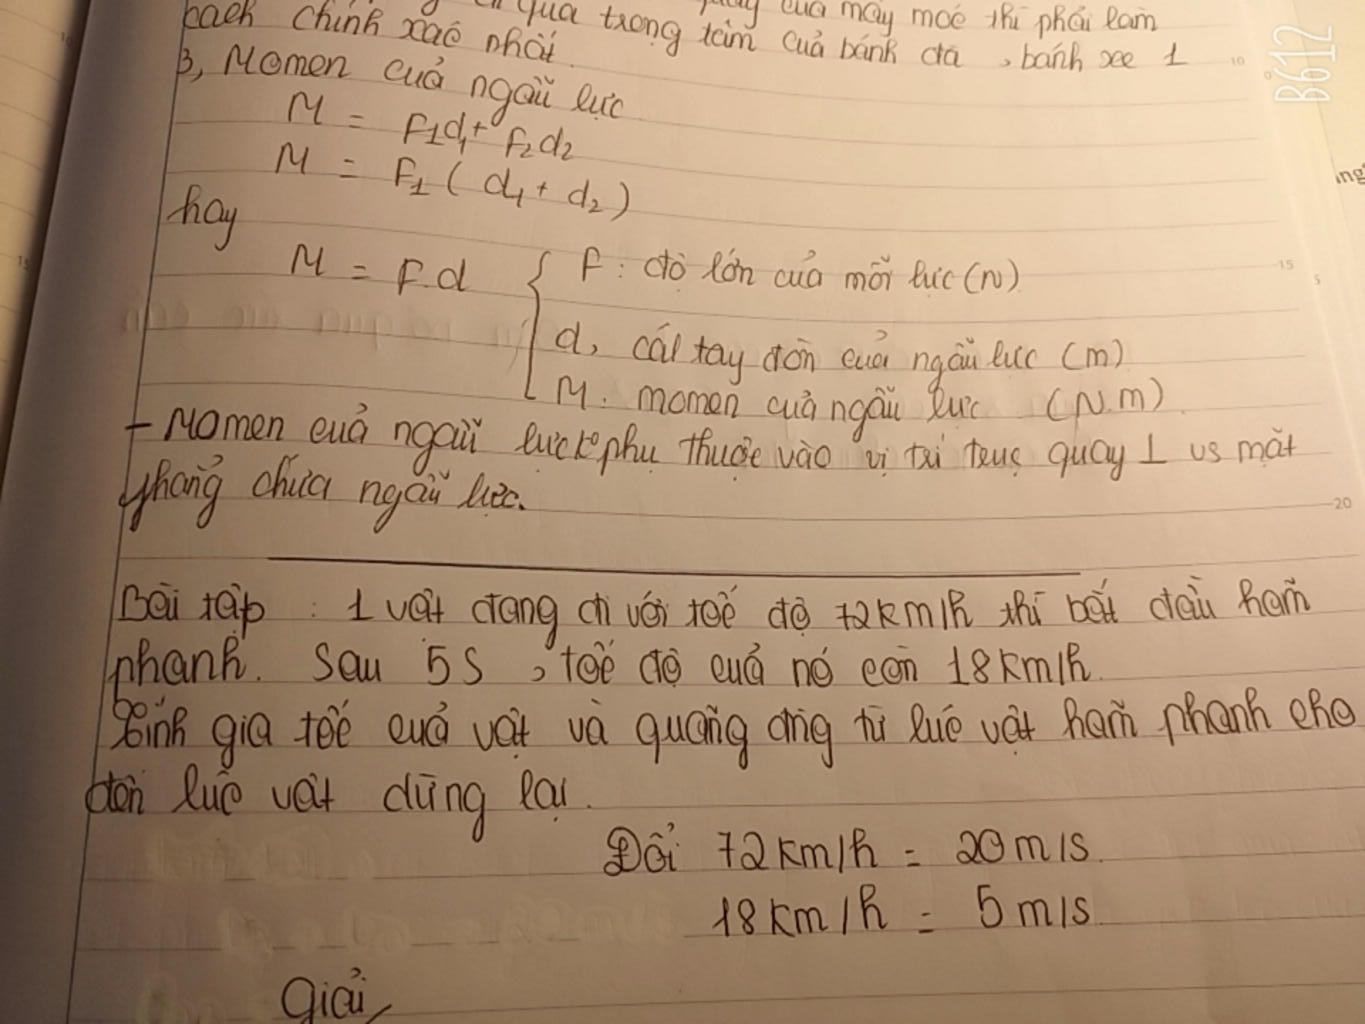 qua trọng tâm của bánh đà, bánh xe 1
của máy móc thì phải làm
cách chính xác nhất.
3, Momen của ngẫu lực
M = F1d1 + F2d2
M = F1 (d1 + d2)
hay
M = F.d
F: độ lớn của mỗi lực (N)
d, cánh tay đòn của ngẫu lực (m)
M. momen của ngẫu lực (N.m)
- Momen của ngẫu lực ko phụ thuộc vào vị trí trục quay ⊥ vs mặt
phẳng chứa ngẫu lực.
Bài tập : 1 vật đang đi với tốc độ 72km/h thì bắt đầu hãm
phanh. Sau 5s, tốc độ của nó còn 18km/h.
Tính gia tốc của vật và quãng đng từ lúc vật hãm phanh cho
đến lúc vật dừng lại.
Đổi 72km/h = 20m/s.
18km/h = 5m/s
Giải
B612
10
15
15
5
20